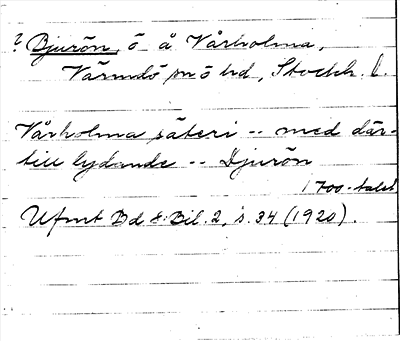 ? Djurön, ö å Vårholma,
Värmdö sn o hd, Stockh. l.
Vårholma säteri -- med där-
till lydande -- Djurön
1700-talet
Ufmt Bd 8: Bil. 2, s. 34 (1920).